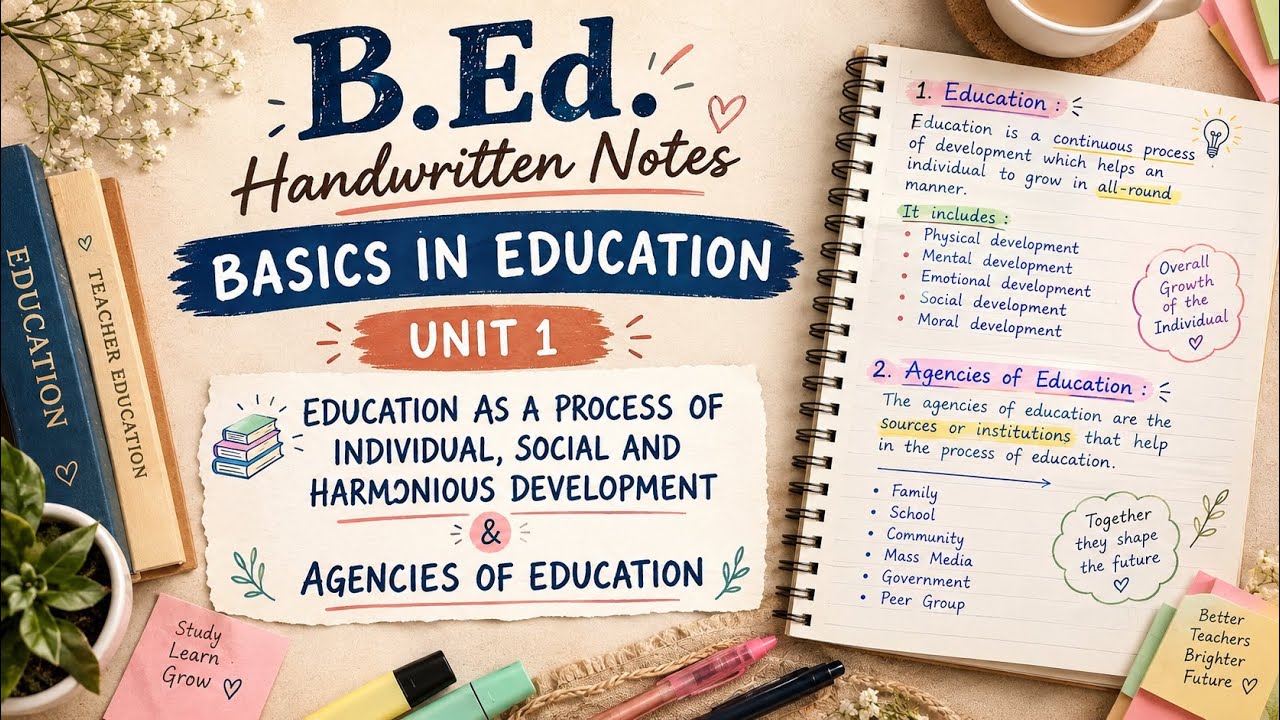 B.Ed.
Handwritten Notes
BASICS IN EDUCATION
UNIT 1
EDUCATION AS A PROCESS OF
INDIVIDUAL, SOCIAL AND
HARMONIOUS DEVELOPMENT
&
AGENCIES OF EDUCATION
EDUCATION
TEACHER EDUCATION
Study
Learn
Grow
1. Education :
Education is a continuous process
of development which helps an
individual to grow in all-round
manner.
It includes :
• Physical development
• Mental development
• Emotional development
• Social development
• Moral development
Overall
Growth
of the
Individual
2. Agencies of Education :
The agencies of education are the
sources or institutions that help
in the process of education.
• Family
• School
• Community
• Mass Media
• Government
• Peer Group
Together
they shape
the future
Better
Teachers
Brighter
Future